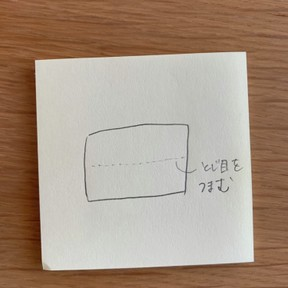 とじ目を
つまむ